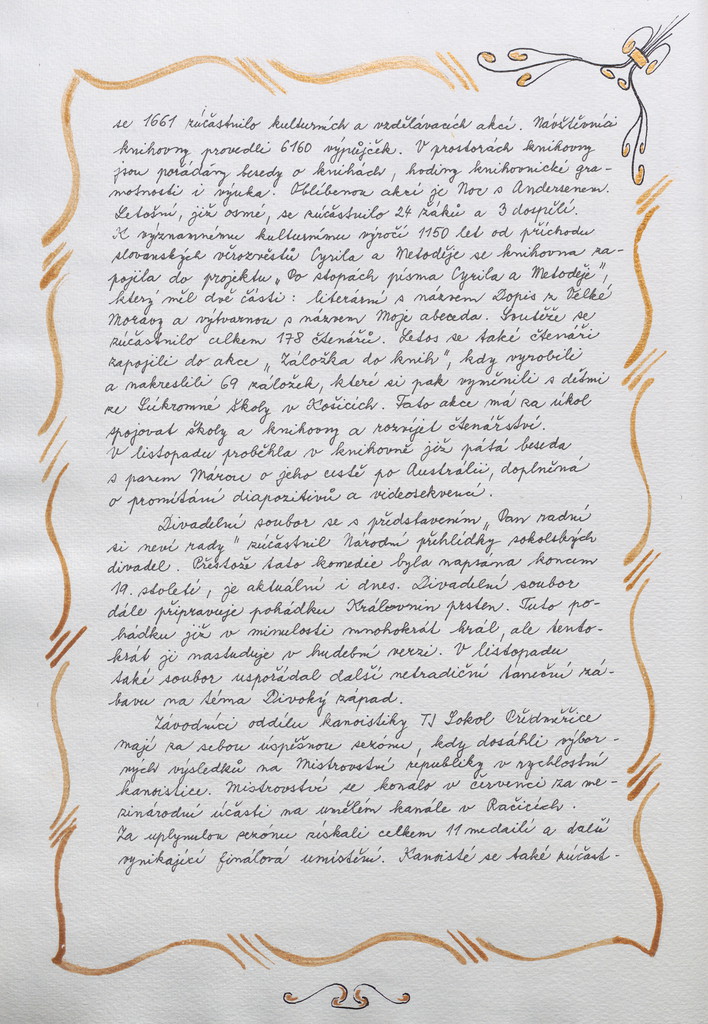 se 1661 zúčastnilo kulturních a vzdělávacích akcí. Návštěvníci
knihovny provedli 6160 výpůjček. V prostorách knihovny
jsou pořádány besedy o knihách, hodiny knihovnické gra-
motnosti i výuka. Oblíbenou akcí je Noc s Andersenem.
Letošní, již osmé, se zúčastnilo 24 žáků a 3 dospělí.
K významnému kulturnímu výročí 1150 let od příchodu
slovanských věrozvěstů Cyrila a Metoděje se knihovna za-
pojila do projektu „Po stopách písma Cyrila a Metoděje",
který měl dvě části: literární s názvem Dopis z Velké
Moravy a výtvarnou s názvem Moje abeceda. Soutěže se
zúčastnilo celkem 178 čtenářů. Letos se také čtenáři
zapojili do akce „Záložka do knih", kdy vyrobili
a nakreslili 69 záložek, které si pak vyměnili s dětmi
ze Súkromné školy v Košicích. Tato akce má za úkol
spojovat školy a knihovny a rozvíjet čtenářství.
V listopadu proběhla v knihovně již pátá beseda
s panem Márou o jeho cestě po Austrálii, doplněná
o promítání diapozitivů a videosekvencí.
Divadelní soubor se s představením „Pan radní
si neví rady" zúčastnil Národní přehlídky sokolských
divadel. Přestože tato komedie byla napsána koncem
19. století, je aktuální i dnes. Divadelní soubor
dále připravuje pohádku Královnin prsten. Tuto po-
hádku již v minulosti mnohokrát hrál, ale tento-
krát ji nastuduje v hudební verzi. V listopadu
také soubor uspořádal další netradiční taneční zá-
bavu na téma Divoký západ.
Závodníci oddílu kanoistiky TJ Sokol Předměřice
mají za sebou úspěšnou sezónu, kdy dosáhli výbor-
ných výsledků na Mistrovství republiky v rychlostní
kanoistice. Mistrovství se konalo v červenci za me-
zinárodní účasti na umělém kanále v Račicích.
Za uplynulou sezónu získali celkem 11 medailí a další
vynikající finálová umístění. Kanoisté se také zúčast-